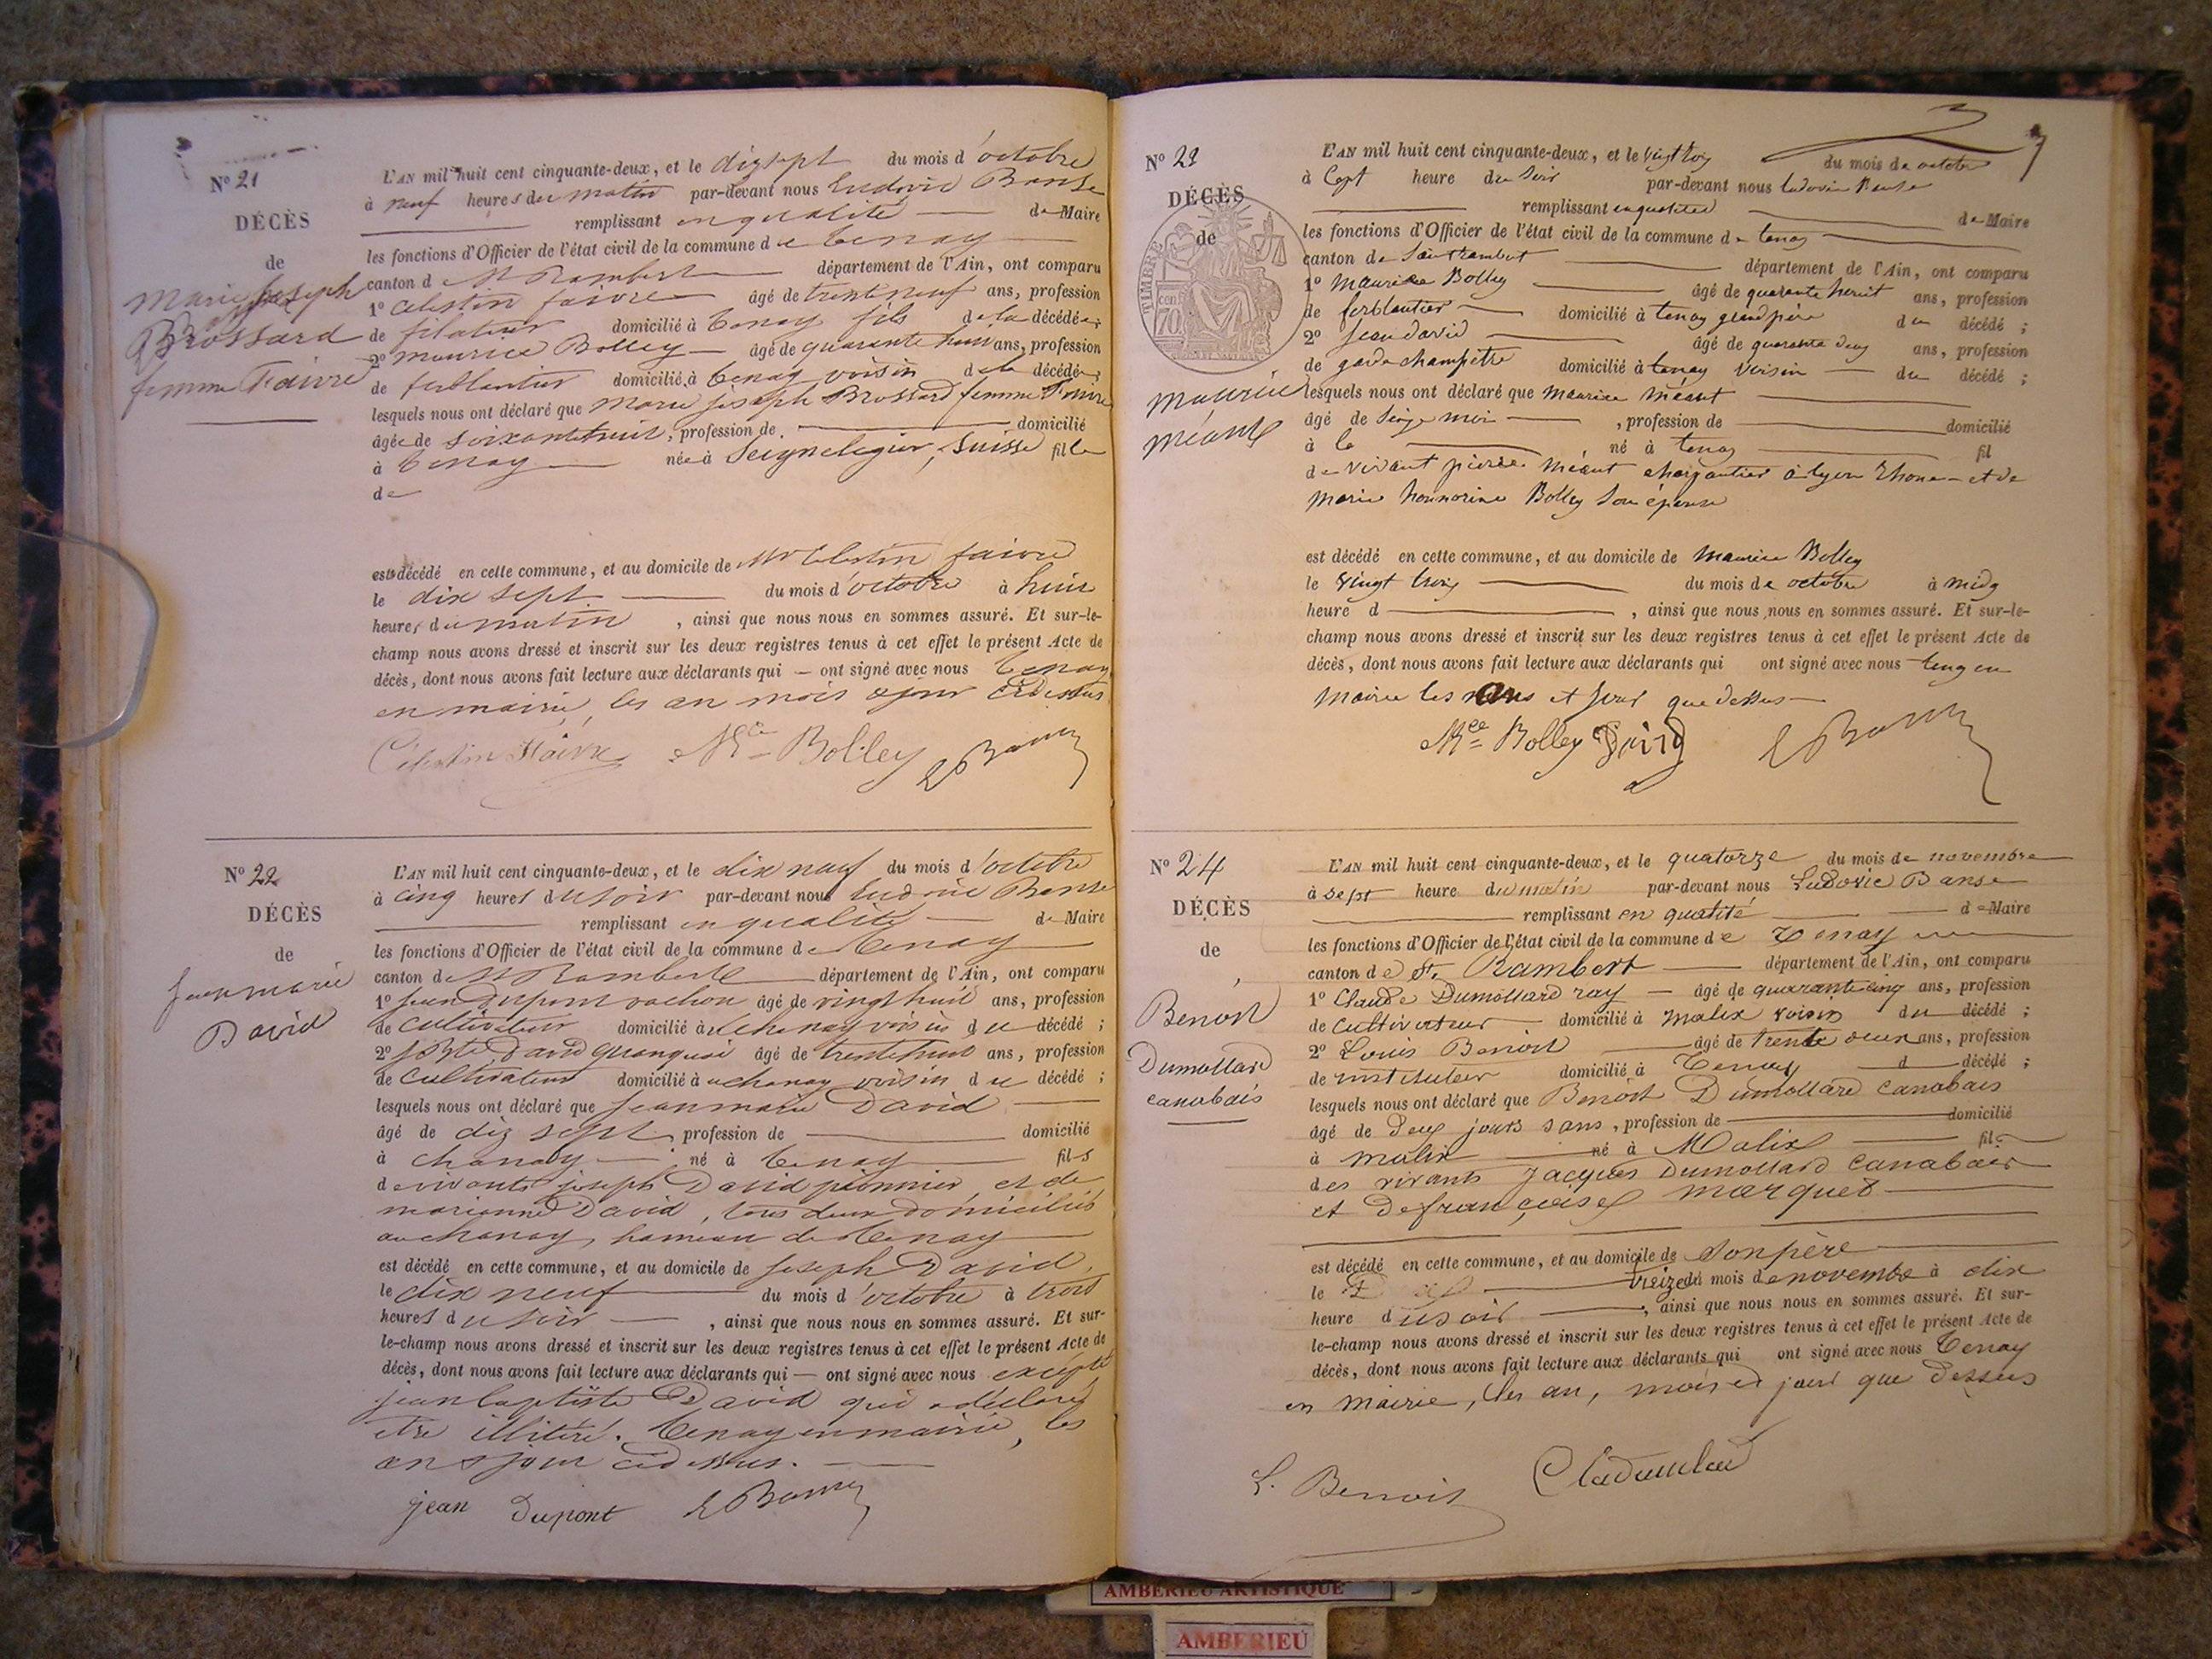 N° 21
DÉCÈS
de
Marie Joseph
Brossard
femme Faivre
L'AN mil huit cent cinquante-deux, et le dixsept du mois d'octobre
à neuf heures du matin par-devant nous Ludovic Banse
remplissant en qualité de Maire
les fonctions d'Officier de l'état civil de la commune de Tenay
canton de St Rambert département de l'Ain, ont comparu
1° Celestin faivre âgé de trente neuf ans, profession
de filateur domicilié à Tenay fils de la décédée;
2° maurice Bolley âgé de quarante huit ans, profession
de ferblantier domicilié à Tenay voisin de la décédée;
lesquels nous ont déclaré que marie joseph Brossard femme Faivre
âgée de soixantehuit, profession de domicilié
à Tenay née à Seignelegier, Suisse fille
de
est décédé en cette commune, et au domicile de Mr Celestin faivre
le dix sept du mois d'octobre à huit
heures du matin, ainsi que nous nous en sommes assuré. Et sur-le-
champ nous avons dressé et inscrit sur les deux registres tenus à cet effet le présent Acte de
décès, dont nous avons fait lecture aux déclarants qui — ont signé avec nous Tenay
en mairie, les an mois & jour ci dessus
Célestin Faivre Mce Bolley L Banse
N° 22
DÉCÈS
de
Jean marie
David
L'AN mil huit cent cinquante-deux, et le dix neuf du mois d'octobre
à cinq heures du soir par-devant nous Ludovic Banse
remplissant en qualité de Maire
les fonctions d'Officier de l'état civil de la commune de Tenay
canton de St Rambert département de l'Ain, ont comparu
1° jean Dupont vachon âgé de vingt huit ans, profession
de cultivateur domicilié à chanay voisin du décédé;
2° J. Bte David âgé de trente huit ans, profession
de cultivateur domicilié à uchanay voisin du décédé;
lesquels nous ont déclaré que jean marie David
âgé de dix sept, profession de domicilié
à chanay né à Tenay fils
de vivants joseph David pionnier et de
marianne David, tous deux domiciliés
au chanay, hameau de Tenay
est décédé en cette commune, et au domicile de joseph David,
le dix neuf du mois d'octobre à trois
heures du soir, ainsi que nous nous en sommes assuré. Et sur-
le-champ nous avons dressé et inscrit sur les deux registres tenus à cet effet le présent Acte de
décès, dont nous avons fait lecture aux déclarants qui — ont signé avec nous excepté
jean baptiste David qui a déclaré
etre illitéré. Tenay en mairie, les
an & jour ci dessus.
jean Dupont L Banse
N° 23
DÉCÈS
de
TIMBRE
70 cent
maurice
méant
L'AN mil huit cent cinquante-deux, et le vingt trois du mois de octobre
à Cept heure du soir par-devant nous ludovic Banse
remplissant en qualité de Maire
les fonctions d'Officier de l'état civil de la commune de tenay
canton de Saint rambert département de l'Ain, ont comparu
1° maurice Bolley âgé de quarante heuit ans, profession
de ferblantier domicilié à tenay grand père du décédé;
2° Jean david âgé de quarante deux ans, profession
de garde champêtre domicilié à tenay voisin du décédé;
lesquels nous ont déclaré que maurice méant
âgé de Seize moi, profession de domicilié
à né à tenay fil
de vivant pierre méant charpantier à lyon Rhone et de
marie honnorine Bolley son épouse
est décédé en cette commune, et au domicile de maurice Bolley
le vingt trois du mois de octobre à midy
heure d, ainsi que nous nous en sommes assuré. Et sur-le-
champ nous avons dressé et inscrit sur les deux registres tenus à cet effet le présent Acte de
décès, dont nous avons fait lecture aux déclarants qui ont signé avec nous tenay en
mairie les ans et jour que dessus
Mce Bolley David L Banse
N° 24
DÉCÈS
de
Benoit
Dumollard
canabais
L'AN mil huit cent cinquante-deux, et le quatorze du mois de novembre
à sept heure du matin par-devant nous Ludovic Banse
remplissant en qualité de Maire
les fonctions d'Officier de l'état civil de la commune de Tenay
canton de St. Rambert département de l'Ain, ont comparu
1° Claude Dumollard ray âgé de quarante cinq ans, profession
de cultivateur domicilié à malix voisin du décédé;
2° Louis Benoit âgé de trente deux ans, profession
de instituteur domicilié à Tenay d décédé;
lesquels nous ont déclaré que Benoit Dumollard canabais
âgé de deux jours sans, profession de domicilié
à malix né à Malix fils
des vivants Jacques Dumollard canabais
et de françoise marquet
est décédé en cette commune, et au domicile de son père
le treize du mois de novembre à dix
heure du soir, ainsi que nous nous en sommes assuré. Et sur-
le-champ nous avons dressé et inscrit sur les deux registres tenus à cet effet le présent Acte de
décès, dont nous avons fait lecture aux déclarants qui ont signé avec nous Tenay
en mairie, les an, mois et jour que dessus
L. Benoit
AMBERIEU ARTISTIQUE
AMBERIEU